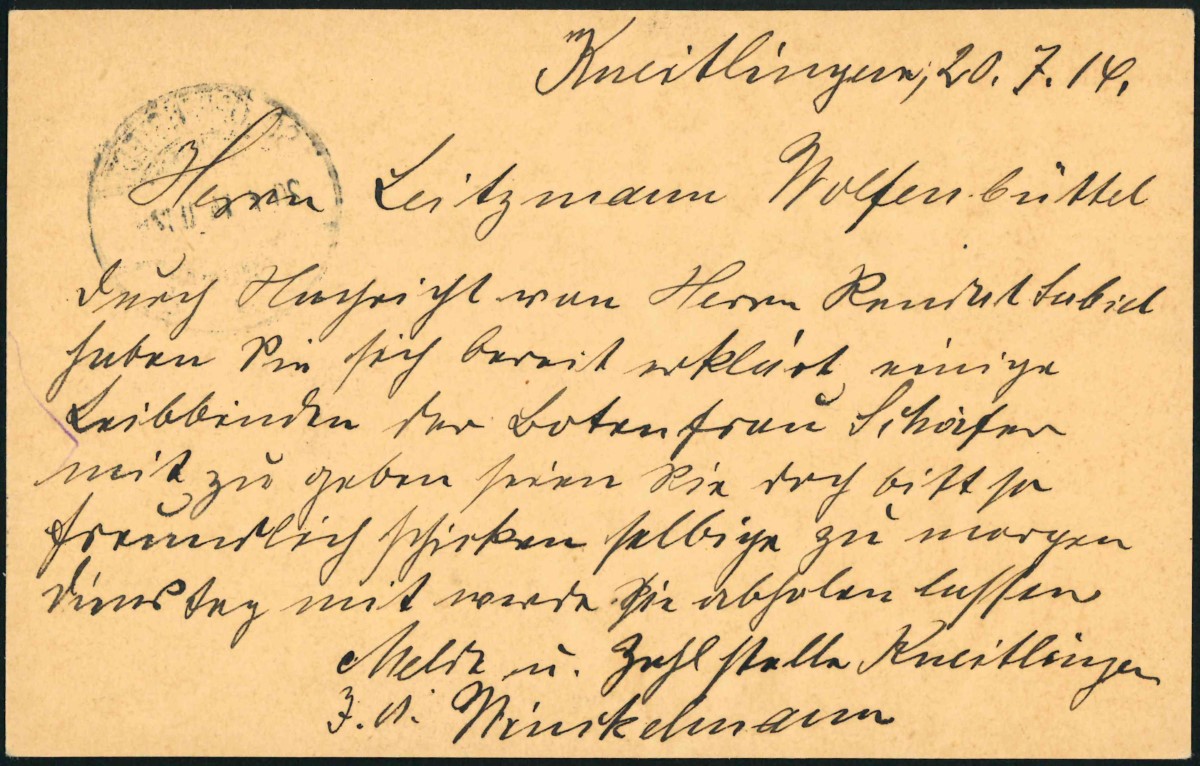 Kneitlingen, 20. 7. 14.
Herrn Leitzmann Wolfenbüttel
durch Nachricht von Herrn Rendat
haben Sie sich bereit erklärt einige
Leibbinden der Botenfrau Schäfer
mit zu geben seien Sie doch bitt so
freundlich schicken selbige zu morgen
Dienstag mit werde Sie abholen lassen
Melde u. Zahlstelle Kneitlingen
Winckelmann